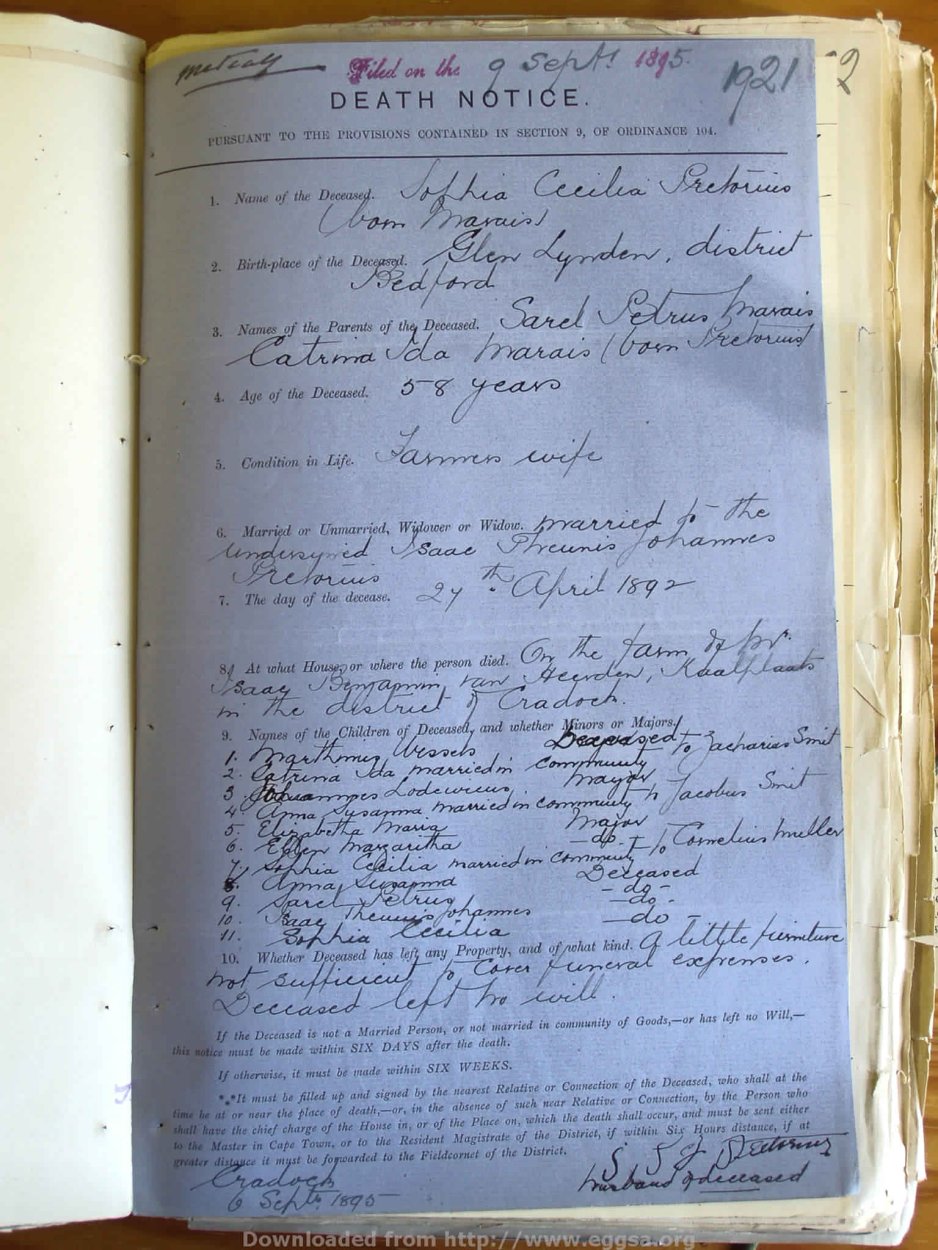 Filed on the 9 Sept. 1895.
1921 2
DEATH NOTICE.
PURSUANT TO THE PROVISIONS CONTAINED IN SECTION 9, OF ORDINANCE 104.
1. Name of the Deceased. Sophia Cecilia Pretorius
(born Marais)
2. Birth-place of the Deceased. Glen Lynden, district
Bedford
3. Names of the Parents of the Deceased. Sarel Petrus Marais
Catrina Ida Marais (born Pretorius)
4. Age of the Deceased. 58 years
5. Condition in Life. Farmers wife
6. Married or Unmarried, Widower or Widow. Married to the
undersigned Isaac Theunis Johannes
Pretorius
7. The day of the decease. 27th April 1892
8. At what House, or where the person died. On the farm of Mr.
Isaay Benjamin van Heerden, Kaalplaats
in the district of Cradock.
9. Names of the Children of Deceased, and whether Minors or Majors.
1. Marthinus Wessels Deceased
2. Catrina Ida married in community to Zacharias Smit
3 Johannes Lodewicus Mayor
4 Anna Susanna married in community to Jacobus Smit
5. Elizabetha Maria Major
6. Ellen Margaritha - do -
7. Sophia Cecilia married in community to Cornelius Muller
8. Anna Susanna Deceased
9. Sarel Petrus - do -
10. Isaac Theunis Johannes - do -
11. Sophia Cecilia - do
10. Whether Deceased has left any Property, and of what kind. A little furniture
not sufficient to cover funeral expenses.
Deceased left no will.
If the Deceased is not a Married Person, or not married in community of Goods,—or has left no Will,—
this notice must be made within SIX DAYS after the death.
If otherwise, it must be made within SIX WEEKS.
*⁎*It must be filled up and signed by the nearest Relative or Connection of the Deceased, who shall at the
time be at or near the place of death,—or, in the absence of such near Relative or Connection, by the Person who
shall have the chief charge of the House in, or of the Place on, which the death shall occur, and must be sent either
to the Master in Cape Town, or to the Resident Magistrate of the District, if within Six Hours distance, if at
greater distance it must be forwarded to the Fieldcornet of the District.
Pretorius
Cradock husband of deceased
6 Sept. 1895
Downloaded from http://www.eggsa.org